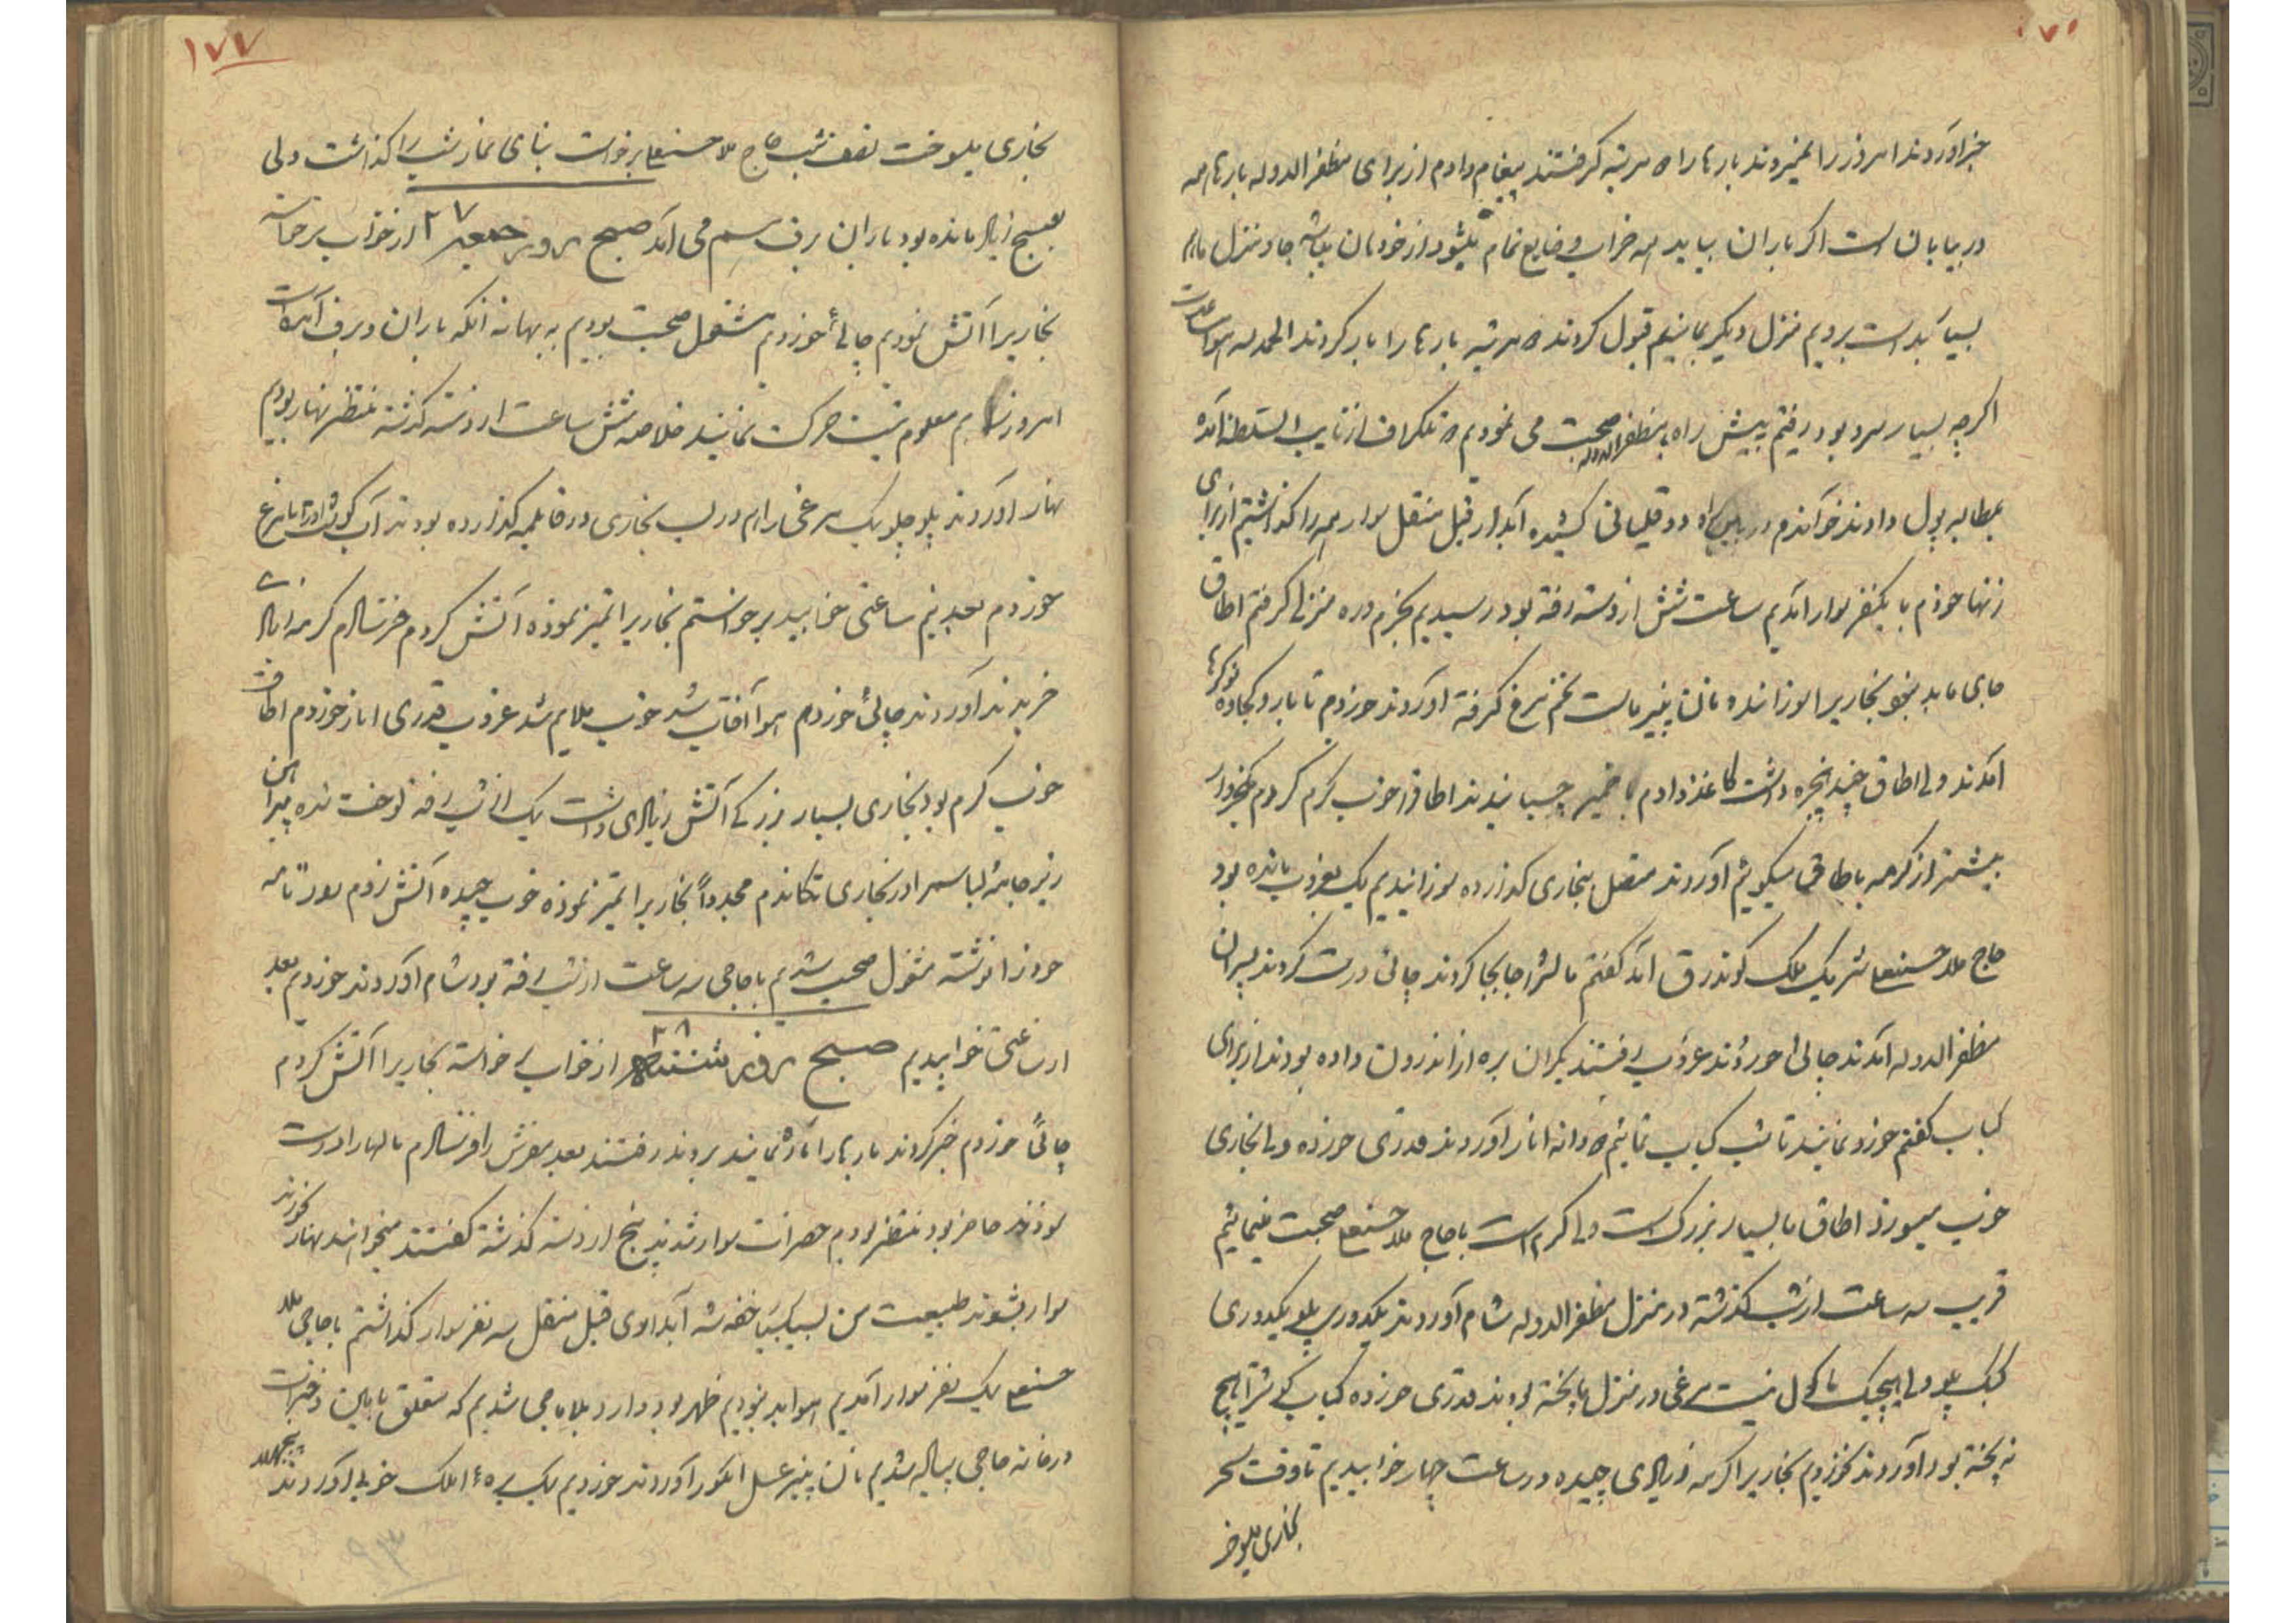 خبر آوردند امروز را نمیروند بارها را مرتبه گرفتند پیغام دادم از برای مظفرالدوله بارها همه
در بیابان است اگر باران بیاید همه خراب و ضایع تمام میشود از خودمان جا و منزل ما هم
بسیار بد است برویم منزل دیگر بمانیم قبول کردند مرتبه بارها را بار کردند الحمد لله هوا ساعت
اگرچه بسیار سرد بود رفتم به پیش راه با مظفرالدوله صحبت می نمودیم تلگراف از نایب السلطنه آمده
بمطالبه پول دادند خواندم در بین راه دو قلیانی کشیده آبدار قبل منقل سوار همه را گذاشتیم از برای
زنها خودم با یکنفر سوار آمدیم ساعت شش از دسته رفته بود رسیدیم بخرم دره منزلی گرفتم اطاق
جای ما بد نبود بخاریرا سوزانده نان پنیر ماست تخم مرغ گرفته آوردند خوردم تا بار و کجاوه نوکرها
آمدند ولی اطاق چند پنجره داشت کاغذ دادم با خمیر چسبانیدند اطاق را خوب گرم کردم
بیشتر از کرمه باطاقی میگویم آوردند متصل ببخاری گذارده سوزانیدیم یک بغروب مانده بود
حاج ملا حسنعلی شریک ملک کوندرق آمد گفتم مالش را جابجا کردند چائی درست کردند پسران
مظفرالدوله آمدند چائی خوردند غروب رفتند یکران بره از اندرون داده بودند از برای
کباب گفتم خورد نمایند تا شب کباب نمائیم دانه انار آوردند قدری خورده ولی بخاری
خوب میسوزد اطاق ما بسیار بزرگ است ولی گرم است با حاج ملا حسنعلی صحبت مینمائیم
قریب سه ساعت از شب گذشته در منزل مظفرالدوله شام آوردند یکدوری پلو یکدوری
کبک پلو ولی هیچیک ماکول نیست مرغی در منزل ما پخته بودند قدری خورده کباب هیچ
نه پخته بود آوردند نخوردیم بخاریرا کرمه زیادی چیده در ساعت چهار خوابیدیم تا وقت سحر
بخاری میسوخت
۱۷۷
بخاری میسوخت نصف شب حاج ملا حسنعلی برخواست بنای نماز شب را گذاشت ولی
بصبح زیاد مانده بود باران برف هم می آمد صبح روز جمعه ۲۷ از خواب برخاسته
بخاریرا آتش نمودیم چائی خوردم مشغول صحبت بودیم به بهانه آنکه باران و برف آمده است
امروز هم معلوم نیست حرکت نمایند خلاصه شش ساعت از دسته گذشته منتظر نهار بودیم
نهار آوردند پلو چلو یک مرغی را هم در لب بخاری در قابلمه گذارده بودند آب گوشت
خوردم بعد نیم ساعتی خوابید برخواستم بخاریرا تمیز نموده آتش کردم فرستادم کرمه زیادی
خریدند آوردند چائی خوردم هوا آفتاب شد خوب ملایم شد غروب قدری انار خوردم اطاقش
خوب گرم بود بخاری بسیار بزرگ آتش زیادی داشت یک از شب رفته لوخت شده پیراهن
زیر جامه لباسم را در بخاری تکاندم مجدداً بخاریرا تمیز نموده خوب چیده آتش زدم
خود را نوشته مشغول صحبت شدیم با حاجی سه ساعت از شب رفته بود شام آوردند خوردیم بعد
از ساعتی خوابیدیم صبح روز شنبه ۲۸ از خواب برخواسته بخاریرا آتش کردم
چائی خوردم خبر کردند بارها را آماده نمایند بروند رفتند بعد مفرش را فرستادم مالها را درست
نموده حاضر بود منتظر بودیم حضرات سوار شدند پنج از دسته گذشته گفتند میخواهند نهار بخورند
سوار بشوند طبیعت من بسیار خفه شد آبداری قبل منقل سه نفر سوار گذاشتم با حاجی ملا
حسنعلی یک نفر سوار آمدیم هوا بد نبودیم ظهر بود وارد شدیم که متعلق
در خانه حاجی پیاده شدیم نان پنیر عسل انگور آوردند خوردیم یک خوبی آوردند